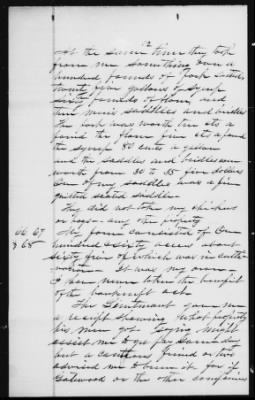 12
At the same time they took
from me something over a
hundred pounds of Pork
twenty five gallons of syrup
sixty pounds of flour, and
their saddles and bridles
The Pork was worth ten cts a
pound the flour five cts a pound
the syrup 80 cents a gallon
and the saddles and bridles
worth from 30 to 35 five dollars
One of my saddles was a fine
quilted seated saddle.
They did not take my chickens
or hogs any other property
66 67
& 68
My farm consisted of One
hundred & sixty acres about
sixty five of which was in culti-
vation It was my own.
I have never taken the benefit
of the bankrupt act.
The Lieutenant gave me
a receipt showing what property
his men got saying might
assist me to get pay some day
but a cautious friend or two
advised me to burn it for if
or the other companies